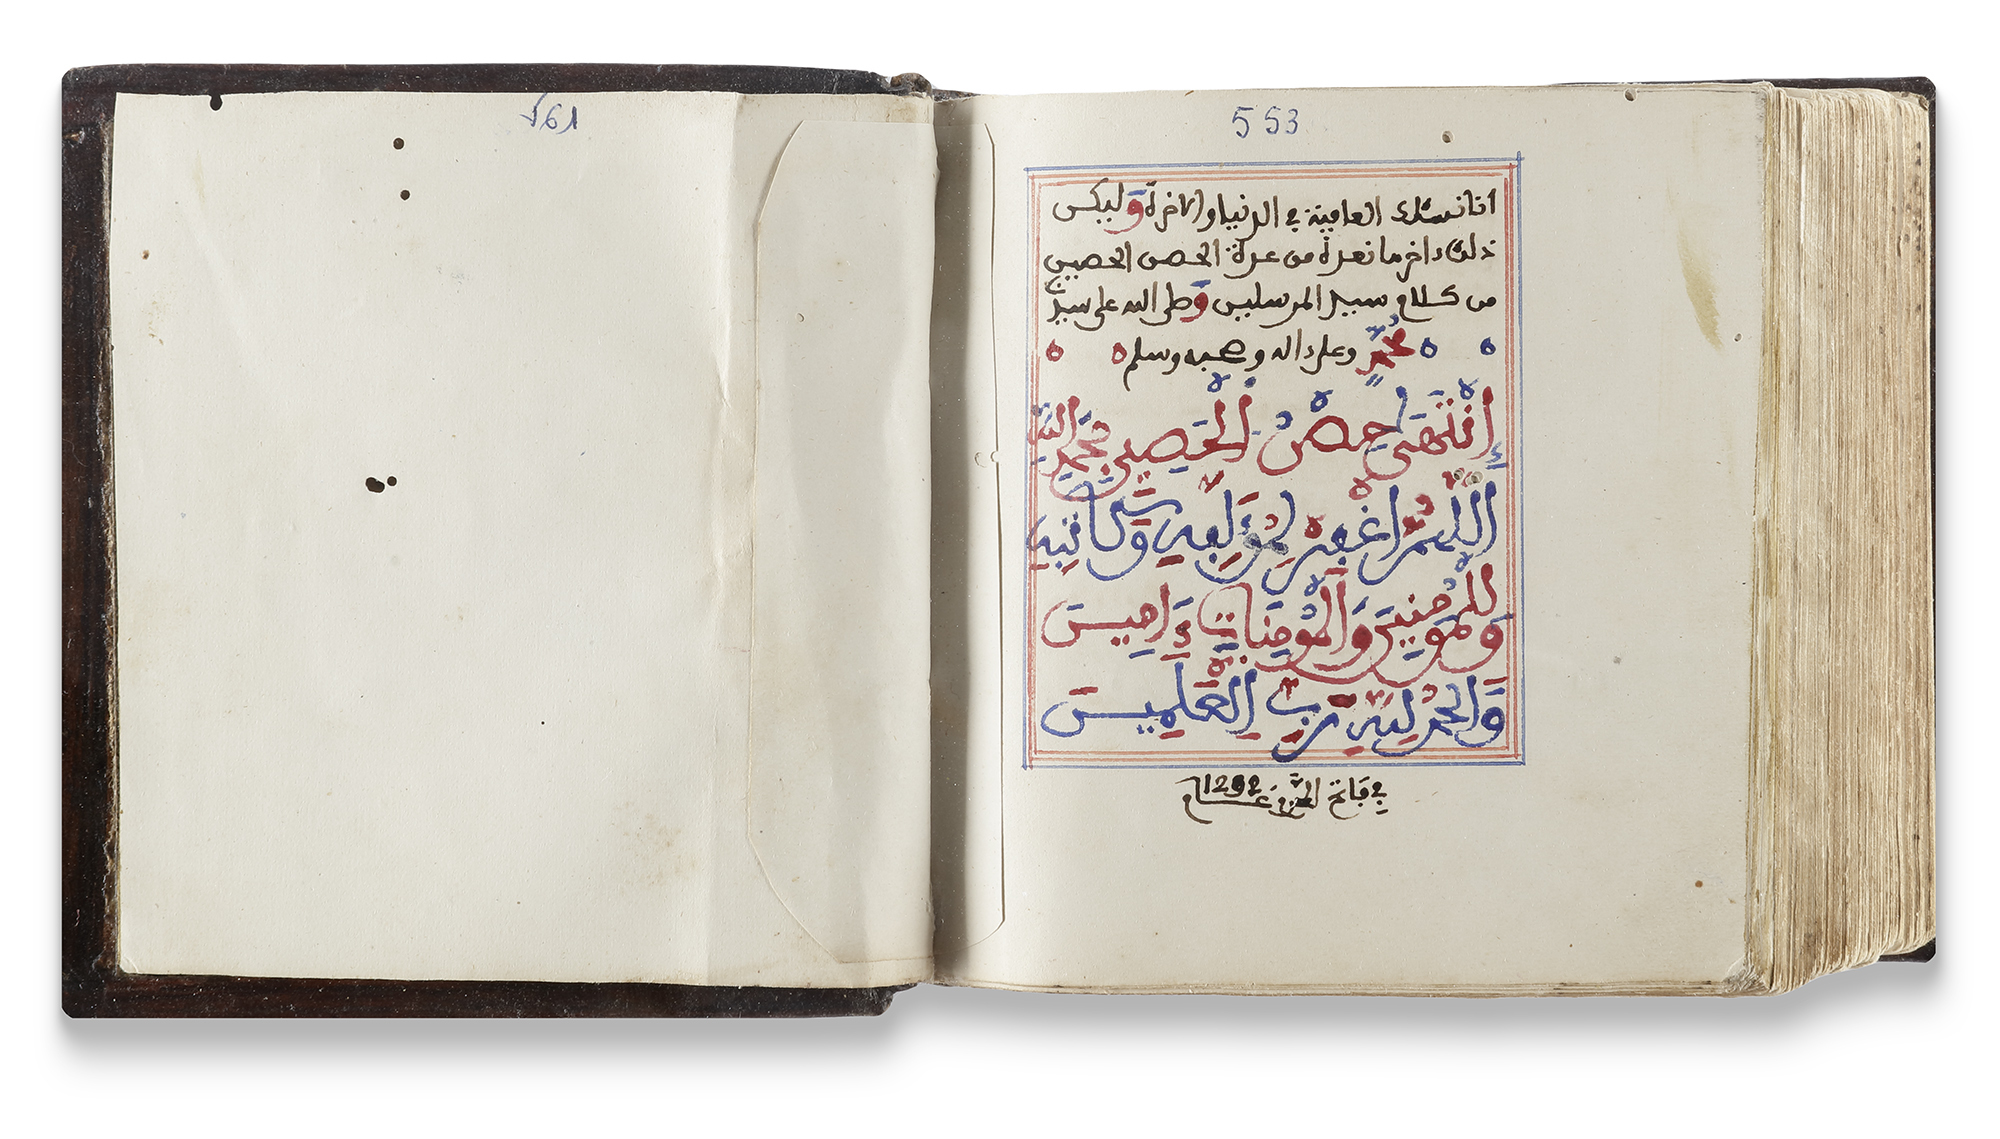 553
انا نسئلك العافية في الدنيا والاخرة وليكن
ذلك ءاخر ما نعدة من عدة الحصن الحصين
من كلام سيد المرسلين وصلى الله على سيدنا
محمد وعلى ءاله وصحبه وسلم
إِنْتَهَى حِصْنُ الْحَصِينِ بِحَمْدِ اللَّهِ
اللَّهُمَّ اغْفِرْ لِمُؤَلِّفِهِ وَكَاتِبِهِ
وَلِلْمُؤْمِنِينَ وَالْمُؤْمِنَاتِ ءَامِينَ
وَالْحَمْدُ لِلَّهِ رَبِّ الْعَٰلَمِينَ
في فاتح المحرم عام 1292